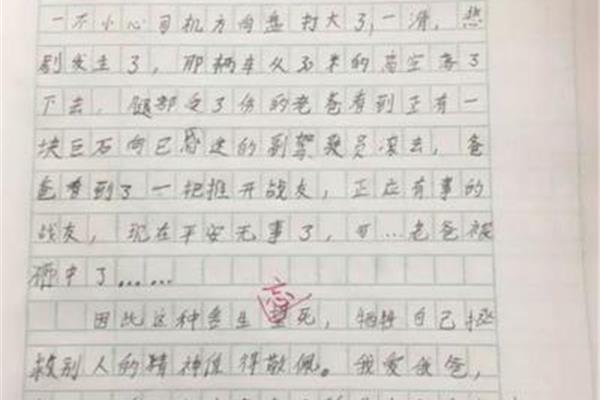 一不小心司机方向盘打大了，一滑，悲
剧发生了，那辆车从30米的高空落了
下去，腿部受了伤的老爸看到正有一
块巨石向已昏迷的副驾驶员滚去，爸
爸看到了一把推开战友，正应有事的
战友，现在平安无事了，可…老爸被
砸中了……
因此这种舍生忘死，牺牲自己拯
救别人的精神值得敬佩。我爱我爸，